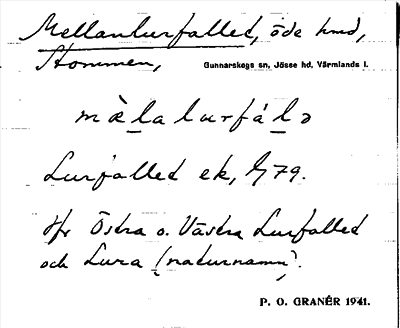 Mellanlurfallet, öde hmd,
Stommen,
Gunnarskogs sn, Jösse hd, Värmlands l.
mà̱lalurfá̱lə
Lurfallet ek, G79.
Jfr Östra o. Västra Lurfallet
och Lura (naturnamn).
P. O. GRANÉR 1941.